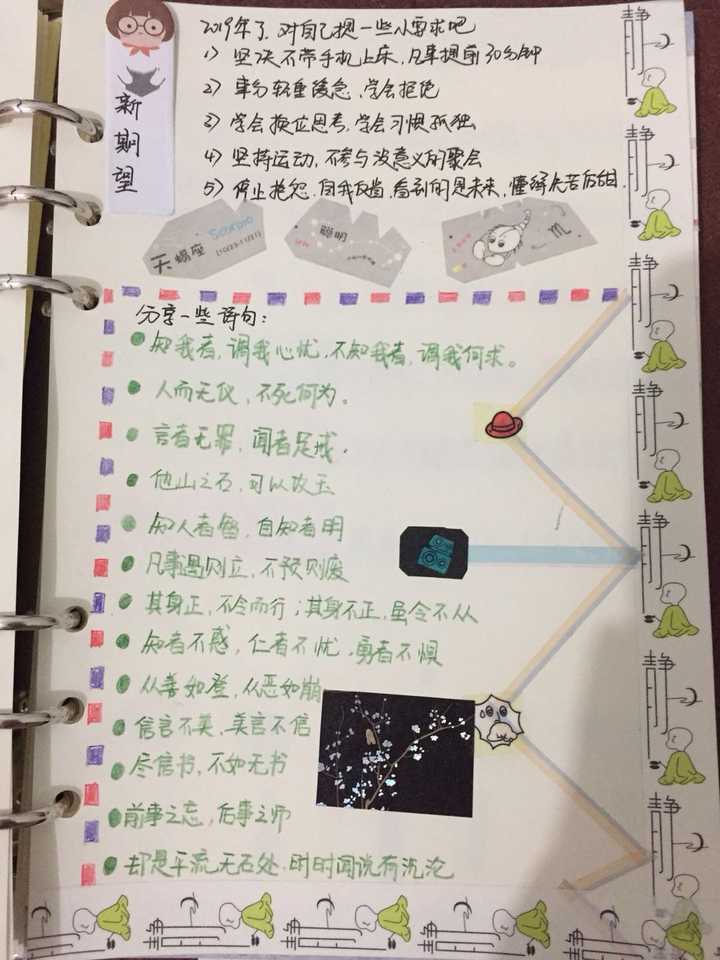 新期望
2019年了,对自己提一些小要求吧
1) 坚决不带手机上床,凡事提前30分钟
2) 事分轻重缓急,学会拒绝
3) 学会换位思考,学会习惯孤独
4) 坚持运动,不参与没意义的聚会
5) 停止抱怨,自我反省,看到的是未来,懂得先苦后甜.
天蝎座 Scorpio
(10/23-11/21)
聪明
分享一些语句:
知我者,谓我心忧,不知我者,谓我何求。
人而无仪,不死何为。
言者无罪,闻者足戒.
他山之石,可以攻玉
知人者智,自知者明
凡事遇则立,不预则废
其身正,不令而行;其身不正,虽令不从
知者不惑,仁者不忧,勇者不惧
从善如登,从恶如崩
信言不美,美言不信
尽信书,不如无书
前事之忘,后事之师
却是平流无石处,时时闻说有沉沦
静
静
静
静
静
静
静
静
静
静
静
静